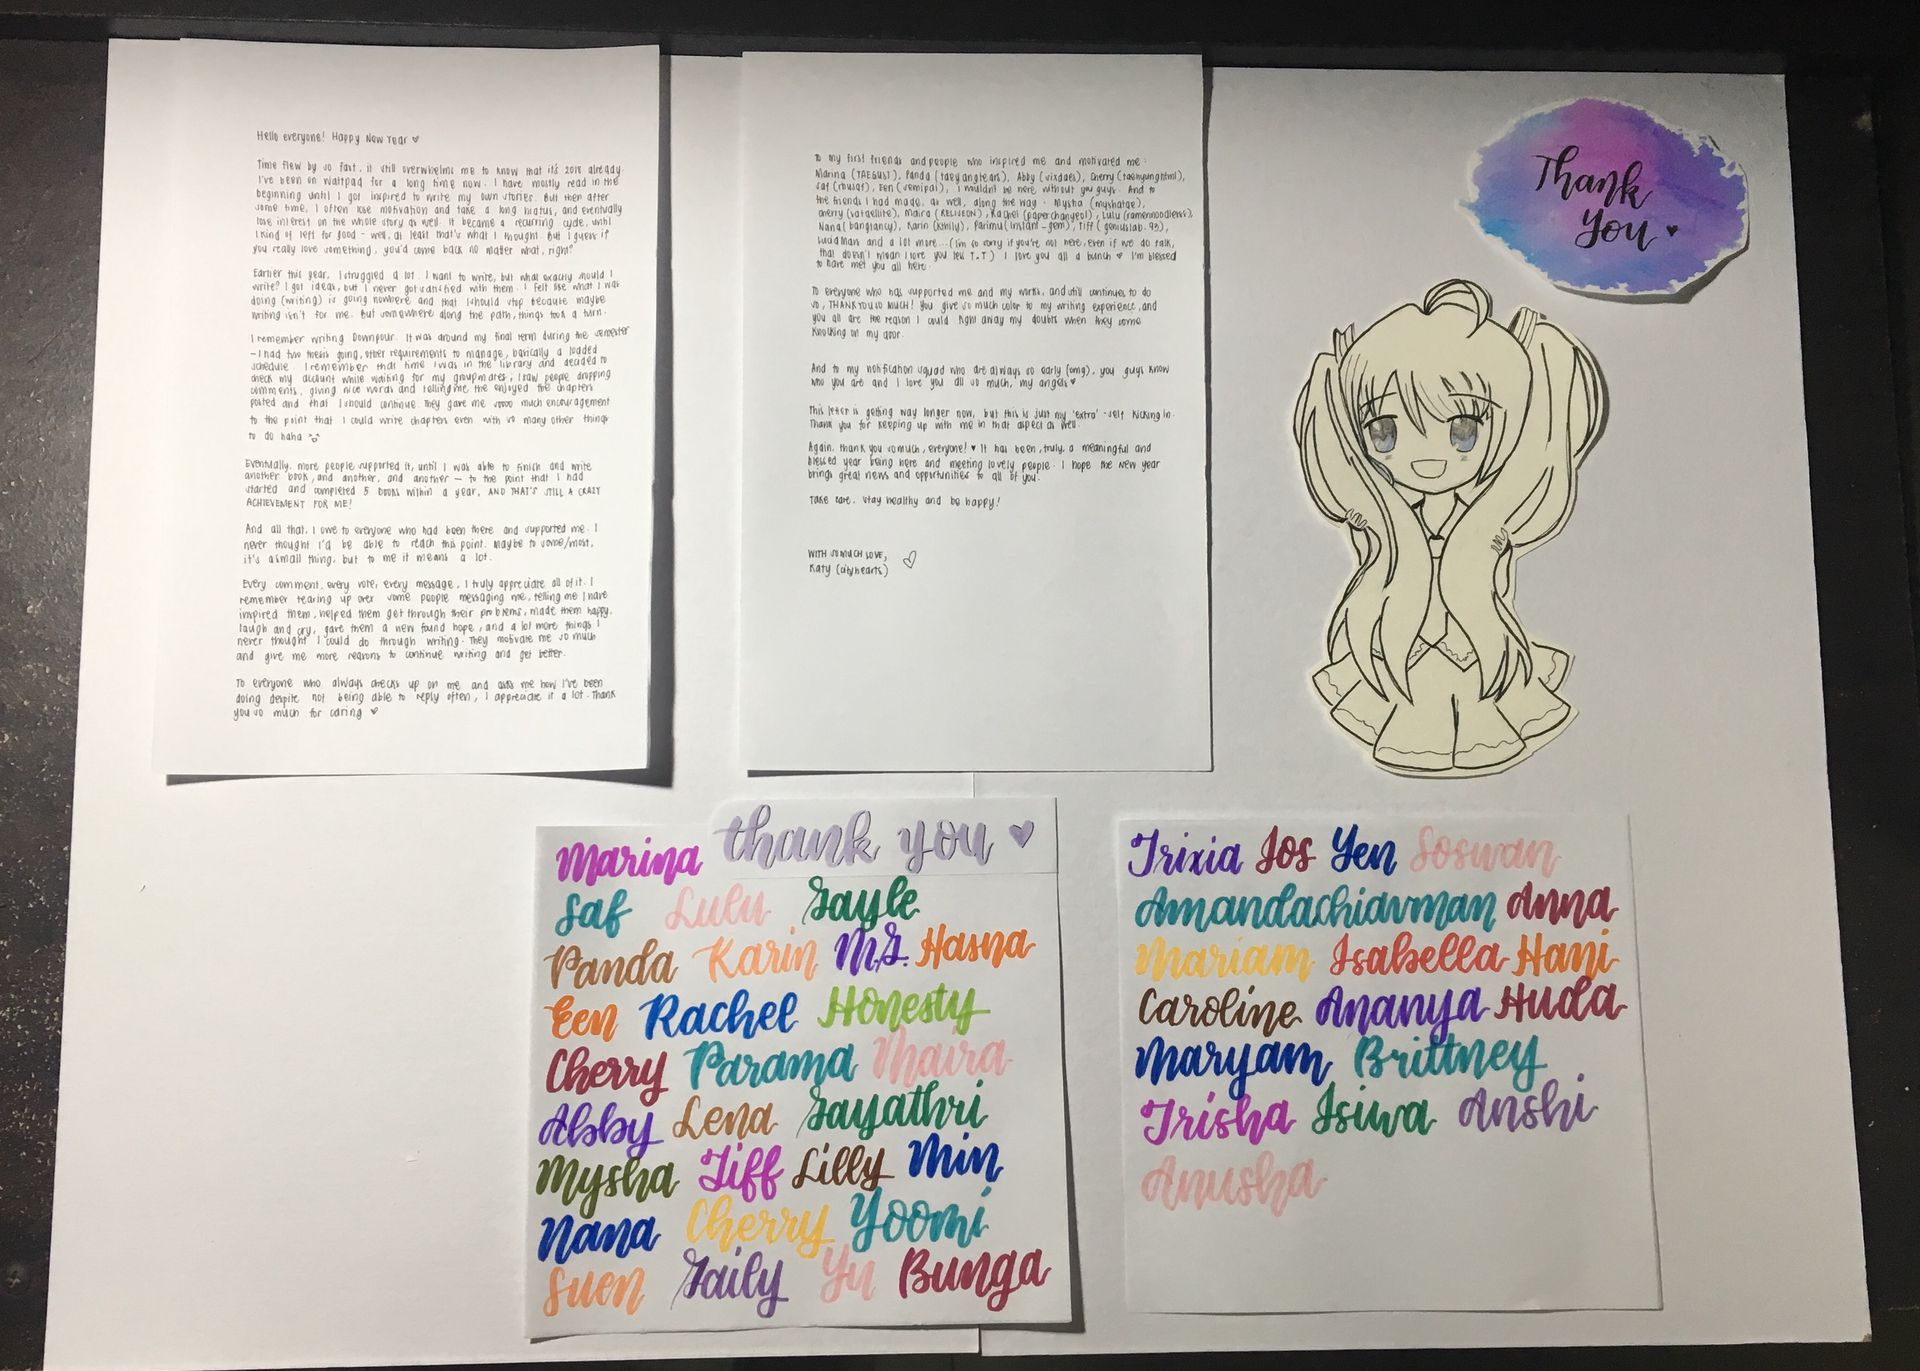 Hello everyone! Happy New Year ♥
Time flew by so fast, it still overwhelms me to know that it's 2018 already.
I've been on wattpad for a long time now. I have mostly read in the
beginning until I got inspired to write my own stories. But then after
some time, I often lose motivation and take a long hiatus, and eventually
lose interest on the whole story as well. It became a recurring cycle, until
I kind of left for good - well, at least that's what I thought. But I guess if
you really love something, you'd come back no matter what, right?
Earlier this year, I struggled a lot. I want to write, but what exactly should I
write? I got ideas, but I never got satisfied with them. I felt like what I was
doing (writing) is going nowhere and that I should stop because maybe
writing isn't for me. But somewhere along the path, things took a turn.
I remember writing Downpour. It was around my final term during the semester
- I had two thesis going, other requirements to manage, basically a loaded
schedule. I remember that time I was in the library and decided to
check my account while waiting for my groupmates; I saw people dropping
comments, giving nice words and telling me the enjoyed the chapters
posted and that I should continue. They gave me soooo much encouragement
to the point that I could write chapters even with so many other things
to do haha
Eventually, more people supported it, until I was able to finish and write
another book, and another, and another - to the point that I had
started and completed 5 books within a year, AND THAT'S STILL A CRAZY
ACHIEVEMENT FOR ME!
And all that, I owe to everyone who had been there and supported me. I
never thought I'd be able to reach this point. Maybe to some/most,
it's a small thing, but to me it means a lot.
Every comment, every vote, every message, I truly appreciate all of it. I
remember tearing up over some people messaging me, telling me I have
inspired them, helped them get through their problems, made them happy,
laugh and cry, gave them a new found hope, and a lot more things I
never thought I could do through writing. They motivate me so much
and give me more reasons to continue writing and get better.
To everyone who always checks up on me and asks me how I've been
doing despite not being able to reply often, I appreciate it a lot. Thank
you so much for caring ♥
To my first friends and people who inspired me and motivated me:
Marina (TAEGUST), Panda (taeyangtears), Abby (vixdaes), Cherry (taehyungntml),
Saf (rbusqt), Een (semipai), I wouldn't be here without you guys. And to
the friends I had made, as well, along the way - Mysha (myshatae),
cherry (vataellite), Maira (RELIGEON), Rachel (paperchanyeol), Lulu (ramennoodlevs),
Nana (bangtancy), Karin (kthlly), Parimu (instant-gem), Tiff (geniuslab-93),
Lucidman and a lot more... (I'm so sorry if you're not here, even if we do talk,
that doesn't mean I love you less T.T) I love you all a bunch ♥ I'm blessed
to have met you all here.
To everyone who has supported me and my works, and still continues to do
so, THANK YOU SO MUCH! You give so much color to my writing experience, and
you all are the reason I could fight away my doubts when they come
knocking on my door.
And to my notification squad who are always so early (omg), you guys know
who you are and I love you all so much, my angels ♥
This letter is getting way longer now, but this is just my 'extra'-self kicking in.
Thank you for keeping up with me in that aspect as well.
Again, thank you so much, everyone! ♥ It has been, truly, a meaningful and
blessed year being here and meeting lovely people. I hope the new year
brings great news and opportunities to all of you.
Take care, stay healthy and be happy!
WITH SO MUCH LOVE,
Katy (cityhearts)
Thank
You ♥
thank you ♥
Marina
Saf Lulu Gayle
Panda Karin M.G. Hasna
Een Rachel Honesty
Cherry Parama Maira
Abby Lena Gayathri
Mysha Tiff Lilly Min
Nana Cherry Yoomi
Suen Gaily Yu Bunga
Trixia Jos Yen Soswan
Amandachiavman Anna
Mariam Isabella Hani
Caroline Ananya Huda
Maryam Brittney
Trisha Isiwa Anshi
Anusha